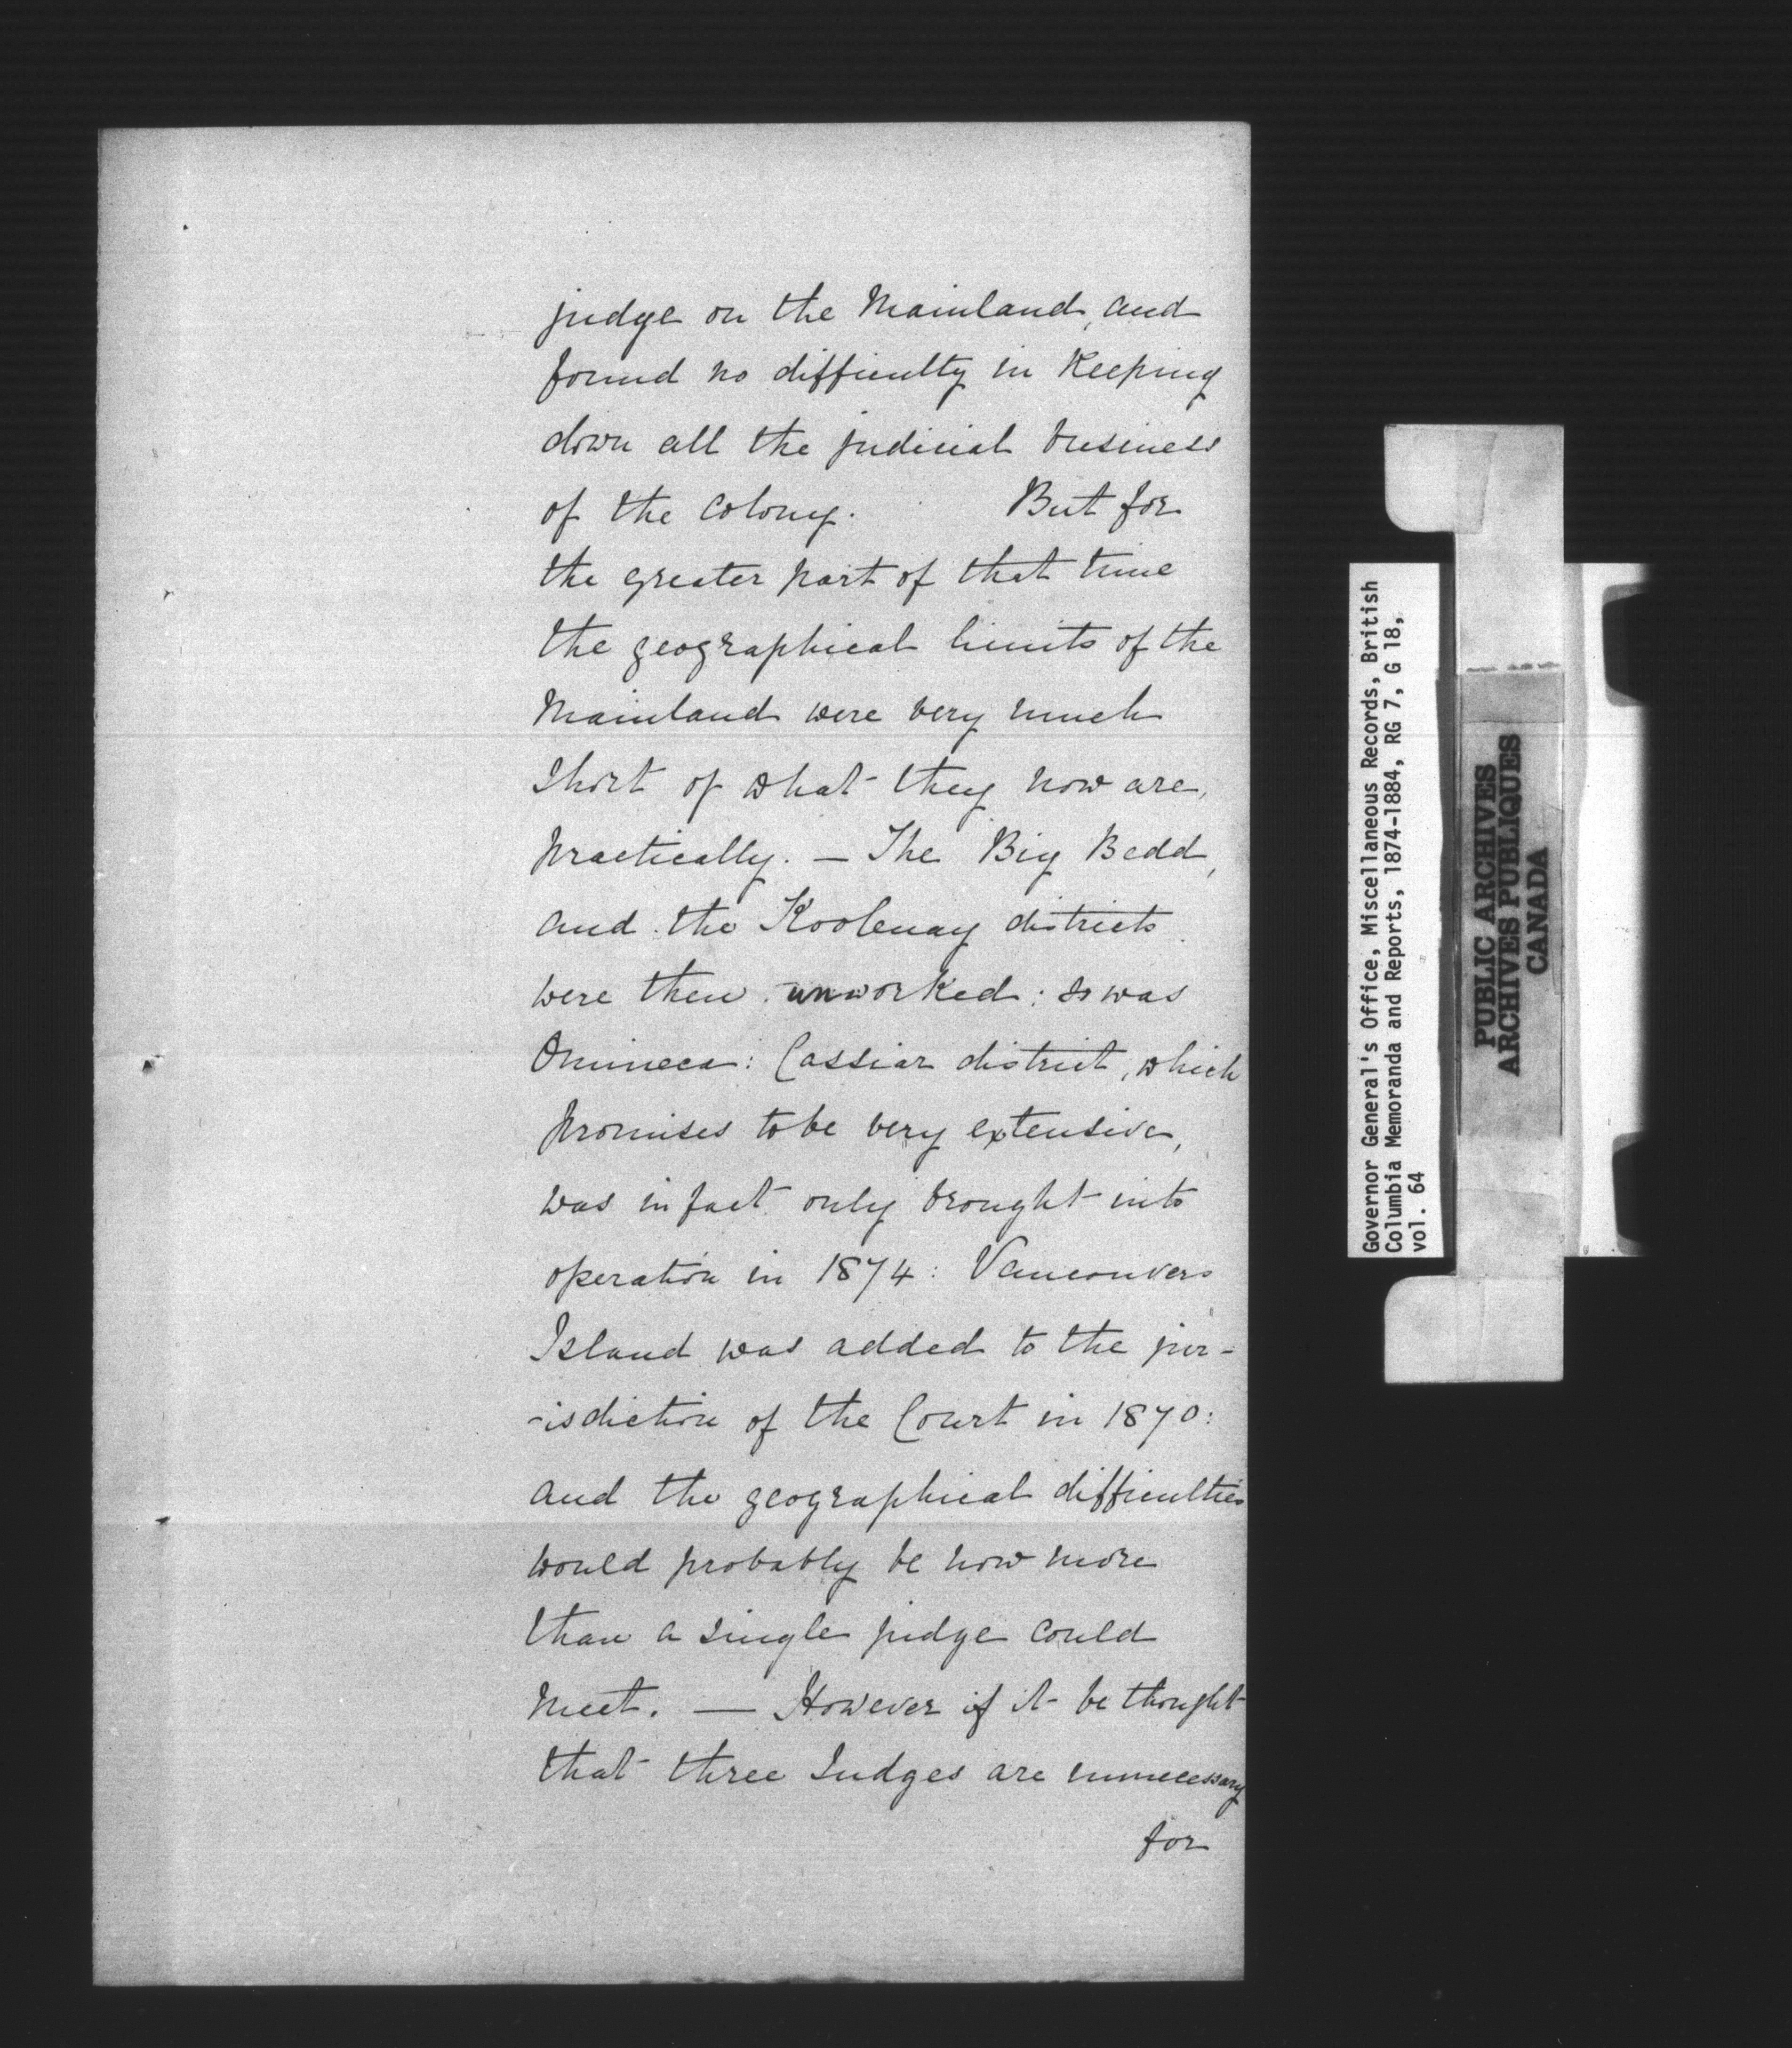 judge on the Mainland, and
found no difficulty in Keeping
down all the judicial business
of the Colony. But for
the greater part of that time
the geographical limits of the
Mainland were very much
short of what they now are,
practically. — The Big Bedd,
and the Kootenay districts
were then unworked: so was
Omineca: Cassiar district, which
promises to be very extensive,
was in fact only brought into
operation in 1874: Vancouvers
Island was added to the jur-
-isdiction of the Court in 1870:
and the geographical difficulties
would probably be now more
than a single judge could
meet. — However if it be thought
that three Judges are unnecessary
for
Governor General's Office, Miscellaneous Records, British
Columbia Memoranda and Reports, 1874-1884, RG 7, G 18,
vol. 64
PUBLIC ARCHIVES
ARCHIVES PUBLIQUES
CANADA